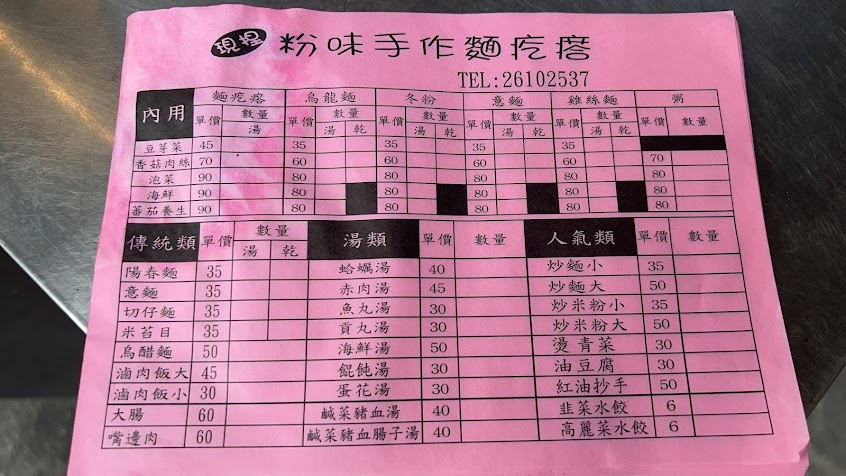 現捏 粉味手作麵疙瘩
TEL:26102537
內用 麵疙瘩 烏龍麵 冬粉 意麵 雞絲麵 粥
單價 數量 單價 數量 單價 數量 單價 數量 單價 數量 單價 數量
湯 湯 乾 湯 乾 湯 乾 湯 乾
豆芽菜 45 35 35 35 35
香菇肉絲 70 60 60 60 60 70
泡菜 90 80 80 80 80 80
海鮮 90 80 80 80 80 80
蕃茄養生 90 80 80 80 80 80
傳統類 單價 數量 湯類 單價 數量 人氣類 單價 數量
湯 乾
陽春麵 35 蛤蠣湯 40 炒麵小 35
意麵 35 赤肉湯 45 炒麵大 50
切仔麵 35 魚丸湯 30 炒米粉小 35
米苔目 35 貢丸湯 30 炒米粉大 50
烏醋麵 50 海鮮湯 50 燙青菜 30
滷肉飯大 45 餛飩湯 30 油豆腐 30
滷肉飯小 30 蛋花湯 30 紅油抄手 50
大腸 60 鹹菜豬血湯 40 韭菜水餃 6
嘴邊肉 60 鹹菜豬血腸子湯 40 高麗菜水餃 6